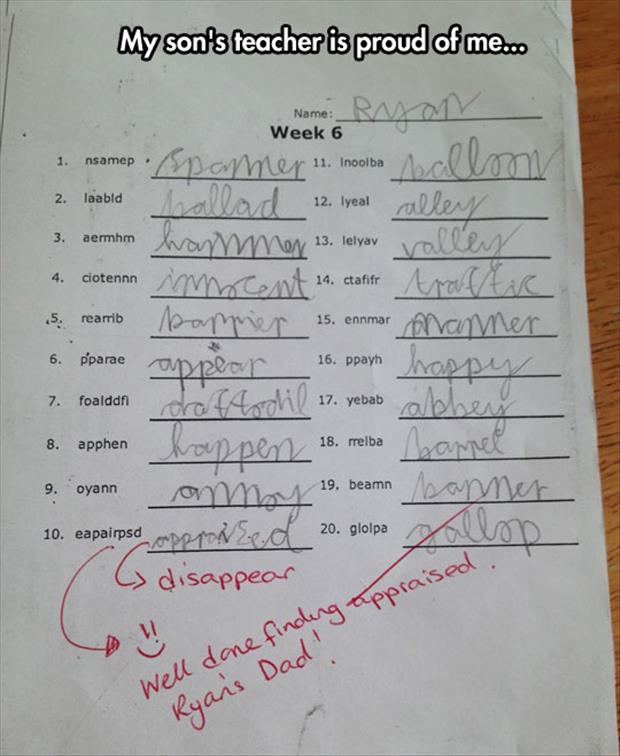 My son's teacher is proud of me...
Name: Ryan
Week 6
1. nsamep spanner 11. lnoolba balloon
2. laabld ballad 12. lyeal alley
3. aermhm hammer 13. lelyav valley
4. ciotennn innocent 14. ctafifr traffic
5. rearrib barrier 15. ennmar manner
6. pparae appear 16. ppayh happy
7. foalddfi daffodil 17. yebab abbey
8. apphen happen 18. rrelba barrel
9. oyann annoy 19. beamn banner
10. eapairpsd appraised 20. glolpa gallop
disappear
Well done finding appraised.
Ryan's Dad!